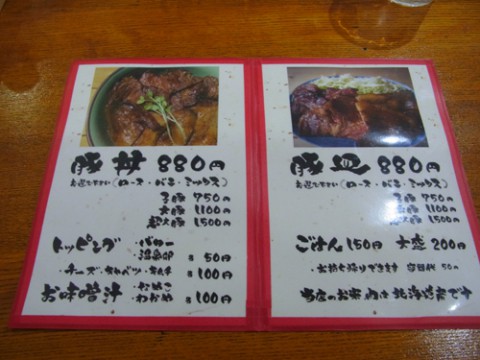 豚丼 880円
お選び下さい(ロース・バラ・ミックス)
子豚 750円
大豚 1100円
超大豚 1500円
トッピング・バター
温泉卵 各50円
チーズ・キャベツ・キムチ 各100円
お味噌汁・なめこ
・わかめ 各100円
豚皿 880円
お選び下さい(ロース・バラ・ミックス)
子豚 750円
大豚 1100円
超大豚 1500円
ごはん 150円 大盛 200円
お持ち帰りできます 容器代 50円
当店のお米・肉は北海道産です